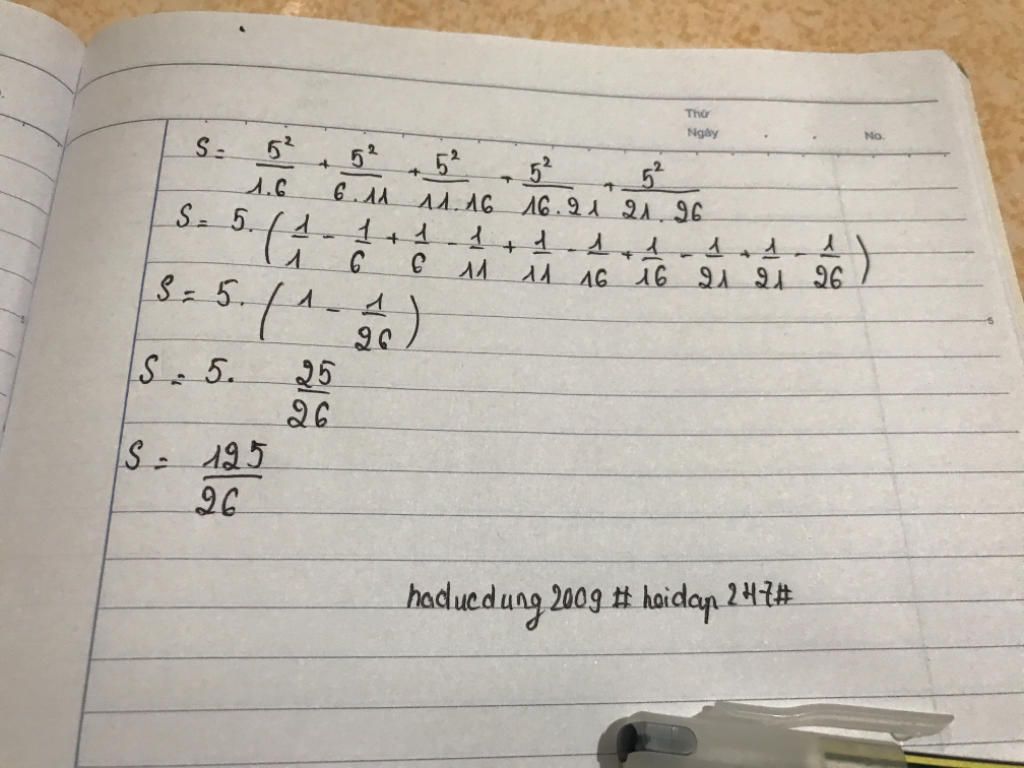 Thứ
Ngày . . No.
S = 5²/1.6 + 5²/6.11 + 5²/11.16 + 5²/16.21 + 5²/21.26
S = 5. (1/1 - 1/6 + 1/6 - 1/11 + 1/11 - 1/16 + 1/16 - 1/21 + 1/21 - 1/26)
S = 5. (1 - 1/26)
S = 5. 25/26
S = 125/26
haducdung2009 # hoidap 247#